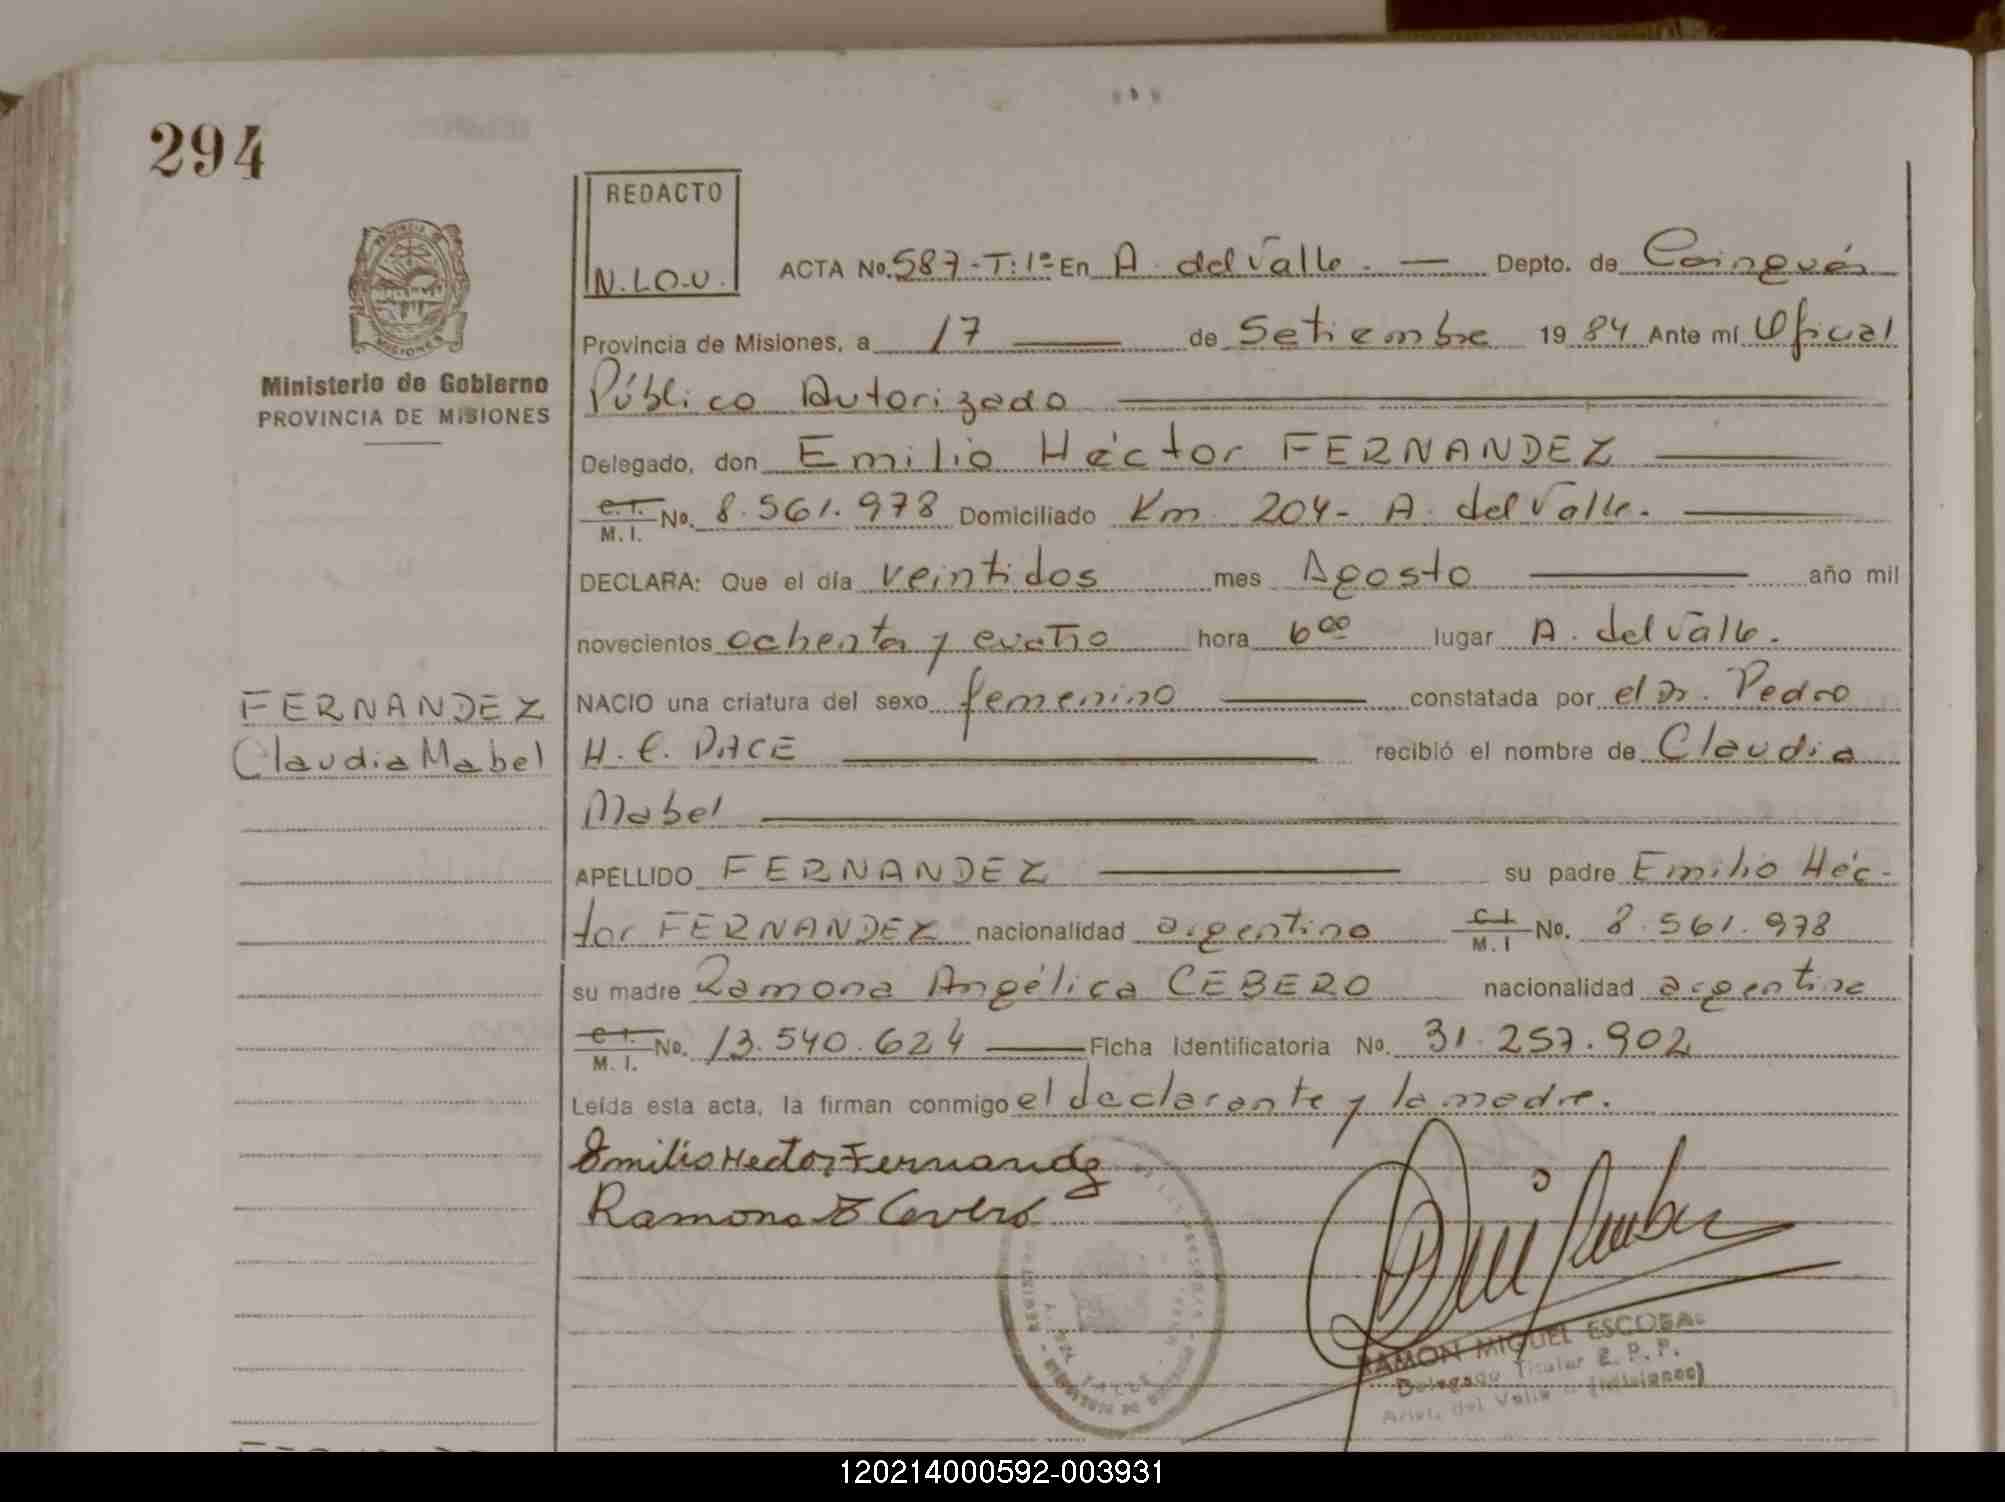 294
REDACTO
N.L.O.U.
PROVINCIA DE
MISIONES
Ministerio de Gobierno
PROVINCIA DE MISIONES
ACTA No. 587-T:1º En A. del Valle. — Depto. de Cainguás
Provincia de Misiones, a 17 — de Setiembre 1984 Ante mí Oficial
Público Autorizado —
Delegado, don Emilio Héctor FERNANDEZ —
C.I. / M.I. No. 8.561.978 Domiciliado Km 204- A. del Valle. —
DECLARA: Que el día veintidos mes Agosto — año mil
novecientos ochenta y cuatro hora 6⁰⁰ lugar A. del Valle.
NACIO una criatura del sexo femenino — constatada por el Dr. Pedro
H. C. PACE — recibió el nombre de Claudia
Mabel —
APELLIDO FERNANDEZ — su padre Emilio Héc-
tor FERNANDEZ nacionalidad argentino C.I. / M.I No. 8.561.978
su madre Ramona Angélica CEBERO nacionalidad argentina
C.I. / M.I. No. 13.540.624 — Ficha Identificatoria No. 31.257.902
Leída esta acta, la firman conmigo el declarante y la madre.
FERNANDEZ
Claudia Mabel
Emilio Hector Fernandz
Ramona
RAMON MIGUEL ESCOBAR
Delegado Titular R. P. P.
Arist. del Valle - (Misiones)
120214000592-003931